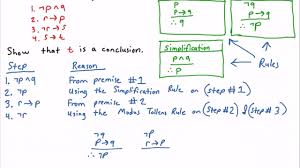 1. ¬p∧q
2. r→p
3. ¬r→s
4. s→t
p
p→q
∴ q
¬q
p→q
∴ ¬p
Simplification
p∧q
∴ p
Rules
Show that t is a conclusion.
Step Reason
1. ¬p∧q From premise #1
2. ¬p Using the Simplification Rule on (step #1)
3. r→p From premise #2
4. ¬r Using the Modus Tollens Rule on (step #2) & (step #3)
¬q
p→q
∴ ¬p
¬p
r→p